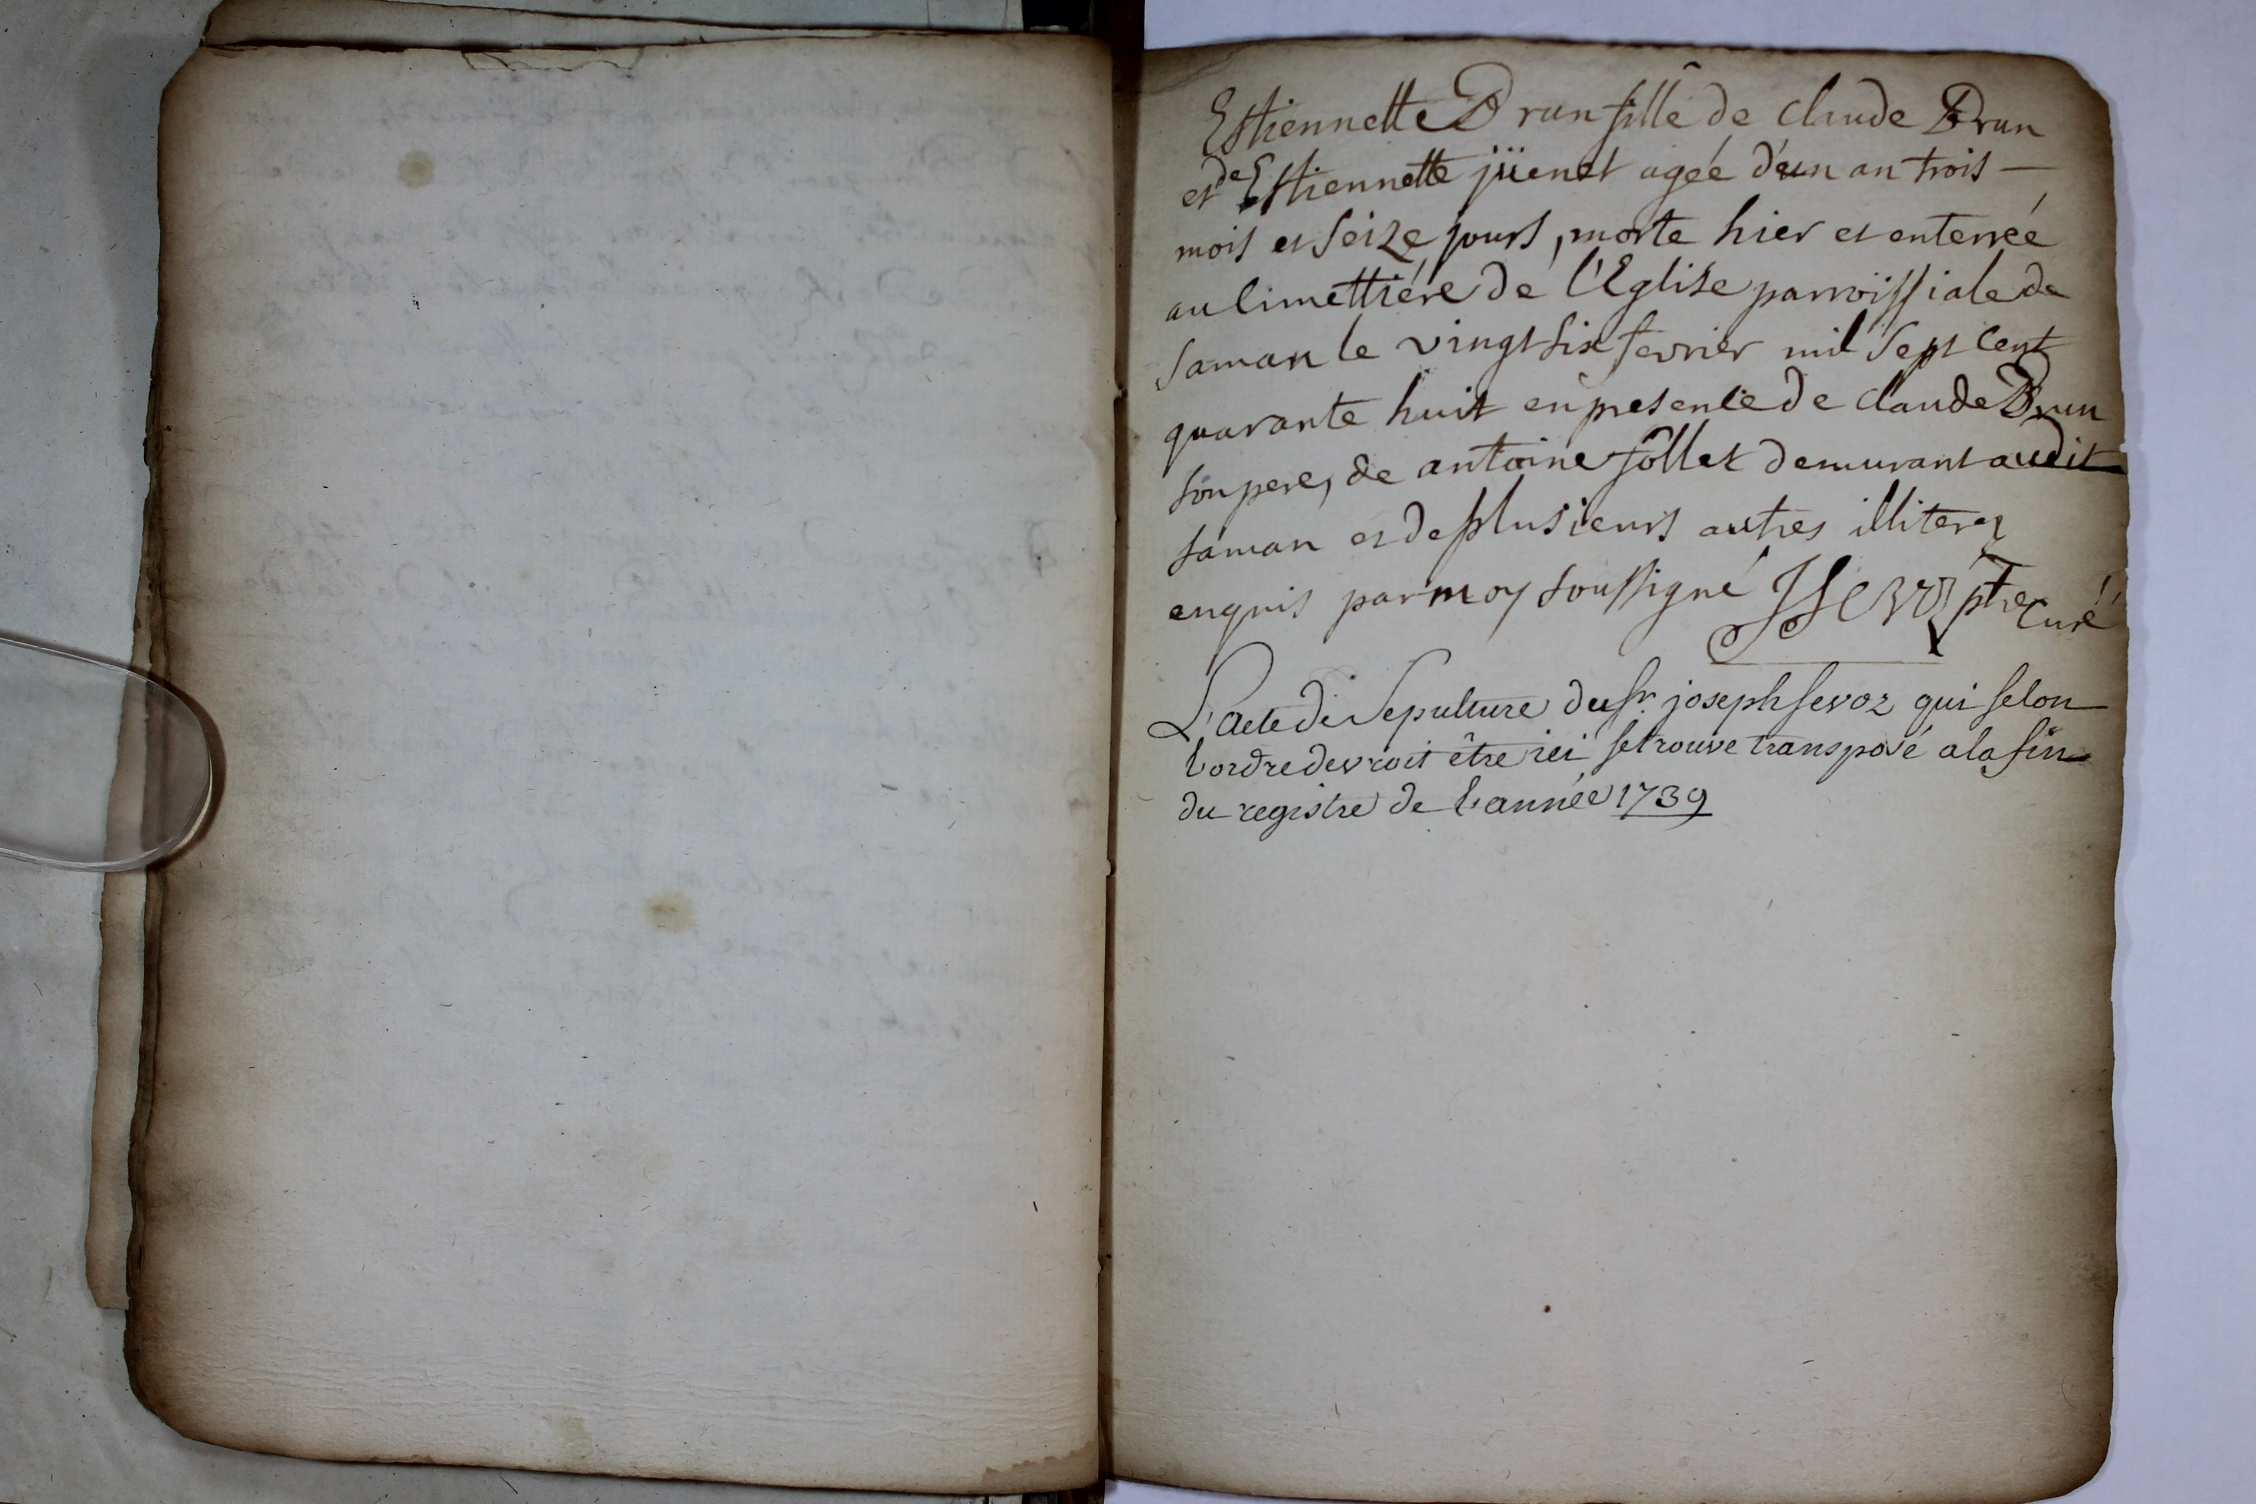 Estiennette Brun fille de claude Brun
et de Estiennette jüenet agée d'un an trois —
mois et seize jours, morte hier et enterrée
au Cimettiére de l'Eglise parroissiale de
saman le vingt six fevrier mil sept cent
quarante huit en presence de claude Brun
son pere, de antoine jollet demurant audit
saman et de plusieurs autres illiterez
enquis par moy soussigné JSevoz ptre Curé
L'acte de Sepulture du sr. joseph sevoz qui selon
l'ordre devroit être ici se trouve transposé a la fin
du registre de l'année 1739